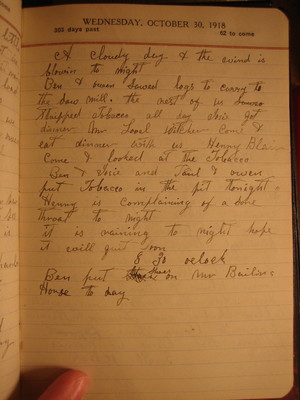 WEDNESDAY, OCTOBER 30, 1918
302 days past 62 to come
A cloudy day & the wind is
blowin to night
Ben & owen sawed logs to carry to
the saw mill. the rest of us
stripped Tobacco all day Josie got
dinner Mr Witcher come &
eat dinner with us Henry Blair
Come & looked at the Tobacco
Ben & Josie and & owen
put Tobacco in the pit tonight
Henny is complaining of a sore
throat to night
it is raining to night hope
it will quit soon
8 30 oclock
Ben put on Mr
House to day